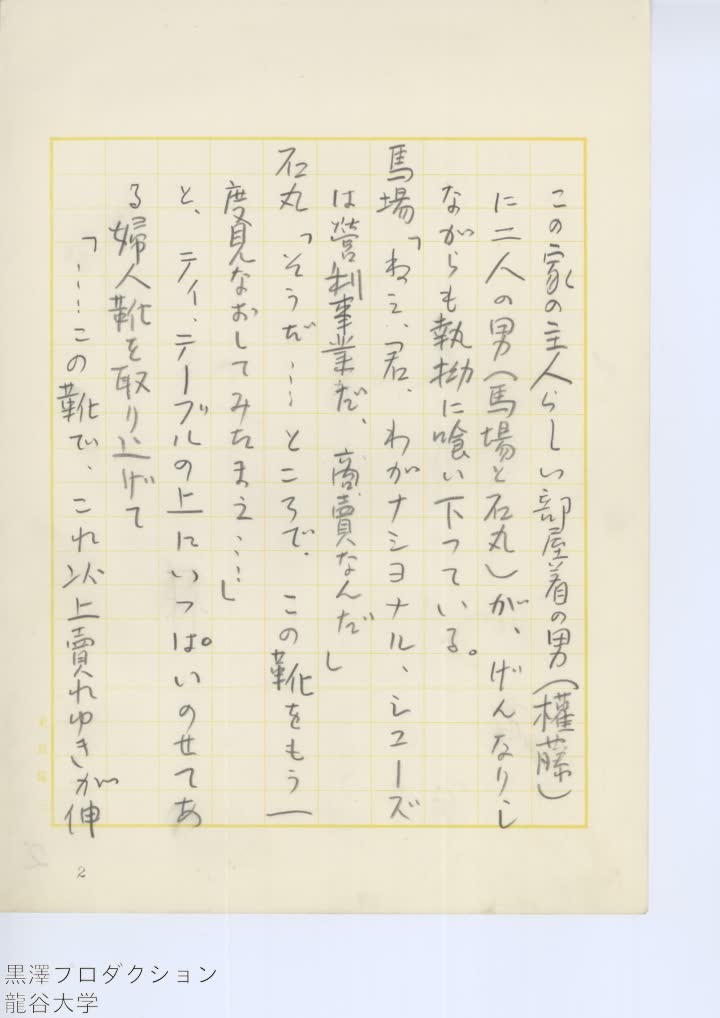 この家の主人らしい部屋着の男(權藤)
に二人の男(馬場と石丸)が、げんなりし
ながらも執拗に喰い下つている。
馬場「ねえ、君、わがナショナル、シューズ
は営利事業だ、商賣なんだ」
石丸「そうだ……ところで、この靴をもう一
度見なおしてみたまえ……」
と、ティ、テーブルの上にいつぱいのせてあ
る婦人靴を取り上げて
「……この靴で、これ以上賣れゆきが伸
2
黒澤プロダクション
龍谷大学